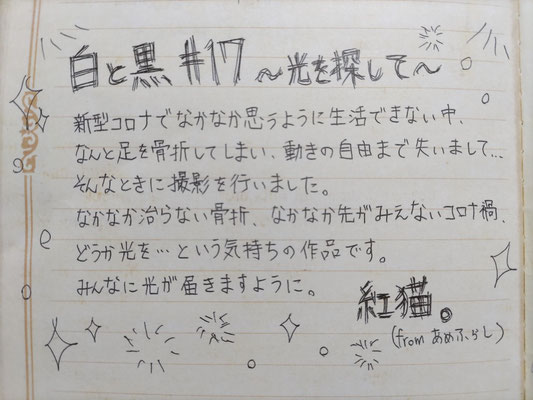 白と黒 #17 〜光を探して〜
新型コロナでなかなか思うように生活できない中、
なんと足を骨折してしまい、動きの自由まで失いまして…
そんなときに撮影を行いました。
なかなか治らない骨折、なかなか先がみえないコロナ禍、
どうか光を…という気持ちの作品です。
みんなに光が届きますように。
紅猫。
(from あめふらし)